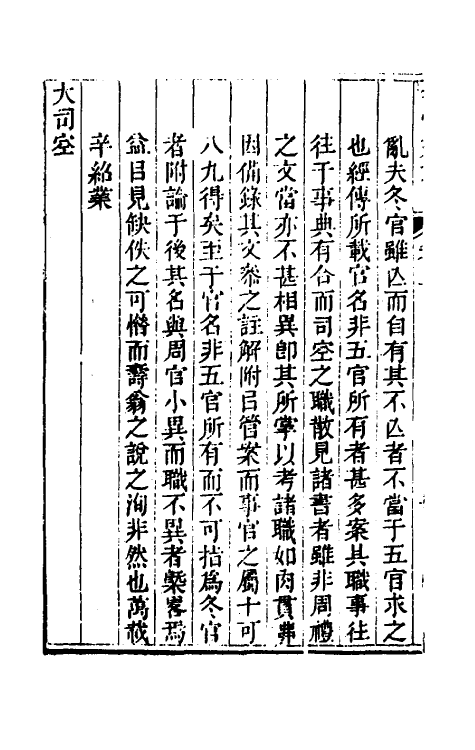 亂夫冬官雖亾而自有其不亾者不當于五官求之
也經傳所載官名非五官所有者甚多案其職事往
往于事典有合而司空之職散見諸書者雖非周禮
之文當亦不甚相異卽其所掌以考諸職如肉貫弗
因備錄其文叅之註解附㠯管案而事官之屬十可
八九得矣至于官名非五官所有而不可指爲冬官
者附論于後其名與周官小異而職不異者槩畧焉
益㠯見缺佚之可惜而壽翁之說之洵非然也萬載
辛紹業
大司空